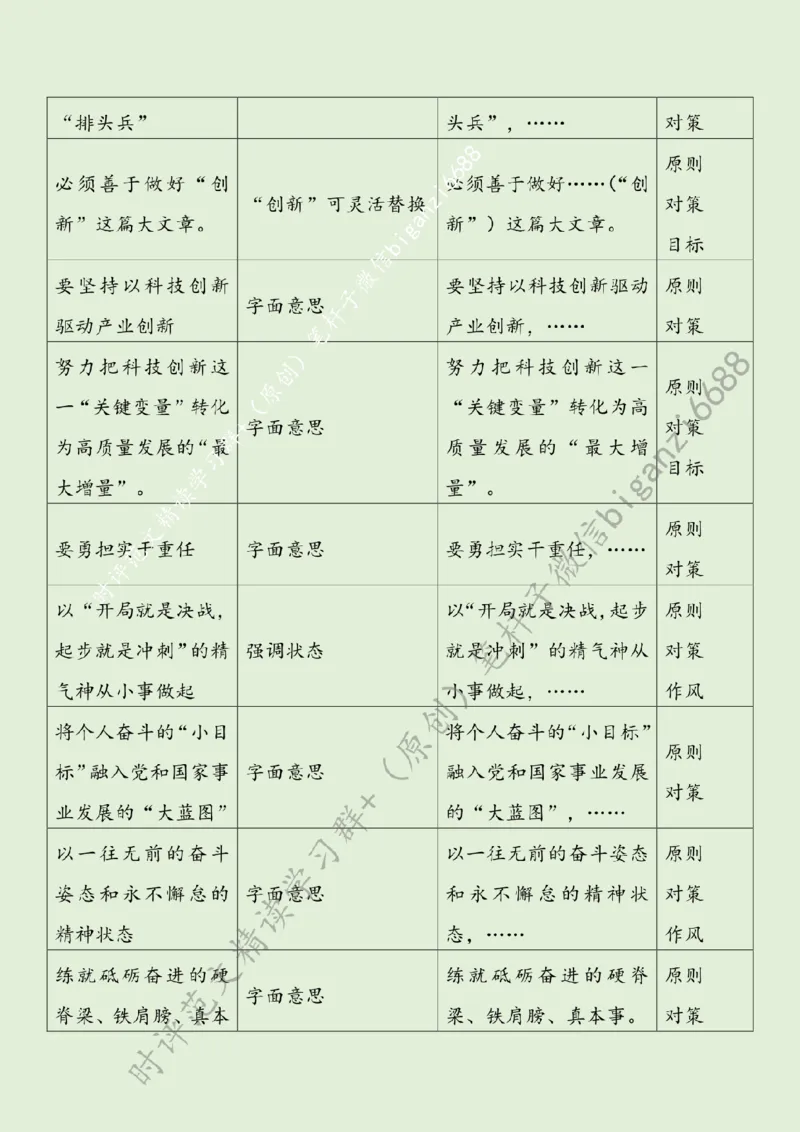 “排头兵”
头兵”，……
对策
必须善于做好“创
新”这篇大文章。
“创新”可灵活替换
必须善于做好……(“创
新”）这篇大文章。
原则
对策
目标
要坚持以科技创新
驱动产业创新
字面意思
要坚持以科技创新驱动
产业创新，……
原则
对策
努力把科技创新这
一“关键变量”转化
为高质量发展的“最
大增量”。
字面意思
努力把科技创新这一
“关键变量”转化为高
质量发展的“最大增
量”。
原则
对策
目标
要勇担实干重任
字面意思
要勇担实干重任，……
原则
对策
以“开局就是决战，
起步就是冲刺”的精
气神从小事做起
强调状态
以“开局就是决战，起步
就是冲刺”的精气神从
小事做起，……
原则
对策
作风
将个人奋斗的“小目
标”融入党和国家事
业发展的“大蓝图”
字面意思
将个人奋斗的“小目标”
融入党和国家事业发展
的“大蓝图”，……
原则
对策
以一往无前的奋斗
姿态和永不懈怠的
精神状态
字面意思
以一往无前的奋斗姿态
和永不懈怠的精神状
态，……
原则
对策
作风
练就砥砺奋进的硬
脊梁、铁肩膀、真本
字面意思
练就砥砺奋进的硬脊
梁、铁肩膀、真本事。
原则
对策
时评范文精读学习群+（原创）笔杆子微信biganzi6688
时评范文精读学习群+（原创）笔杆子微信biganzi6688